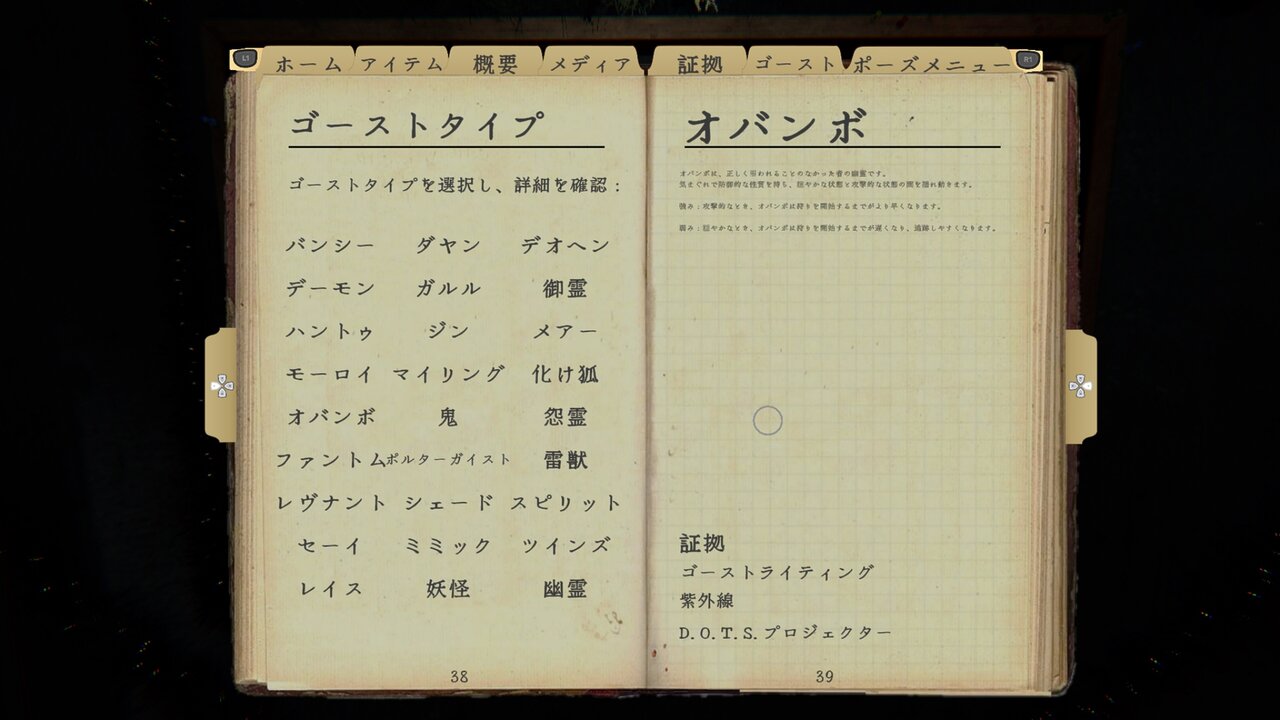 L1 ホーム アイテム 概要 メディア 証拠 ゴースト ポーズメニュー R1
ゴーストタイプ
ゴーストタイプを選択し、詳細を確認：
バンシー ダヤン デオヘン
デーモン ガルル 御霊
ハントゥ ジン メアー
モーロイ マイリング 化け狐
オバンボ 鬼 怨霊
ファントム ポルターガイスト 雷獣
レヴナント シェード スピリット
セーイ ミミック ツインズ
レイス 妖怪 幽霊
38
オバンボ
オバンボは、正しく弔われることのなかった者の幽霊です。
気まぐれで防御的な性質を持ち、穏やかな状態と攻撃的な状態の間を揺れ動きます。
強み：攻撃的なとき、オバンボは狩りを開始するまでがより早くなります。
弱み：穏やかなとき、オバンボは狩りを開始するまでが遅くなり、追跡しやすくなります。
証拠
ゴーストライティング
紫外線
D.O.T.S.プロジェクター
39